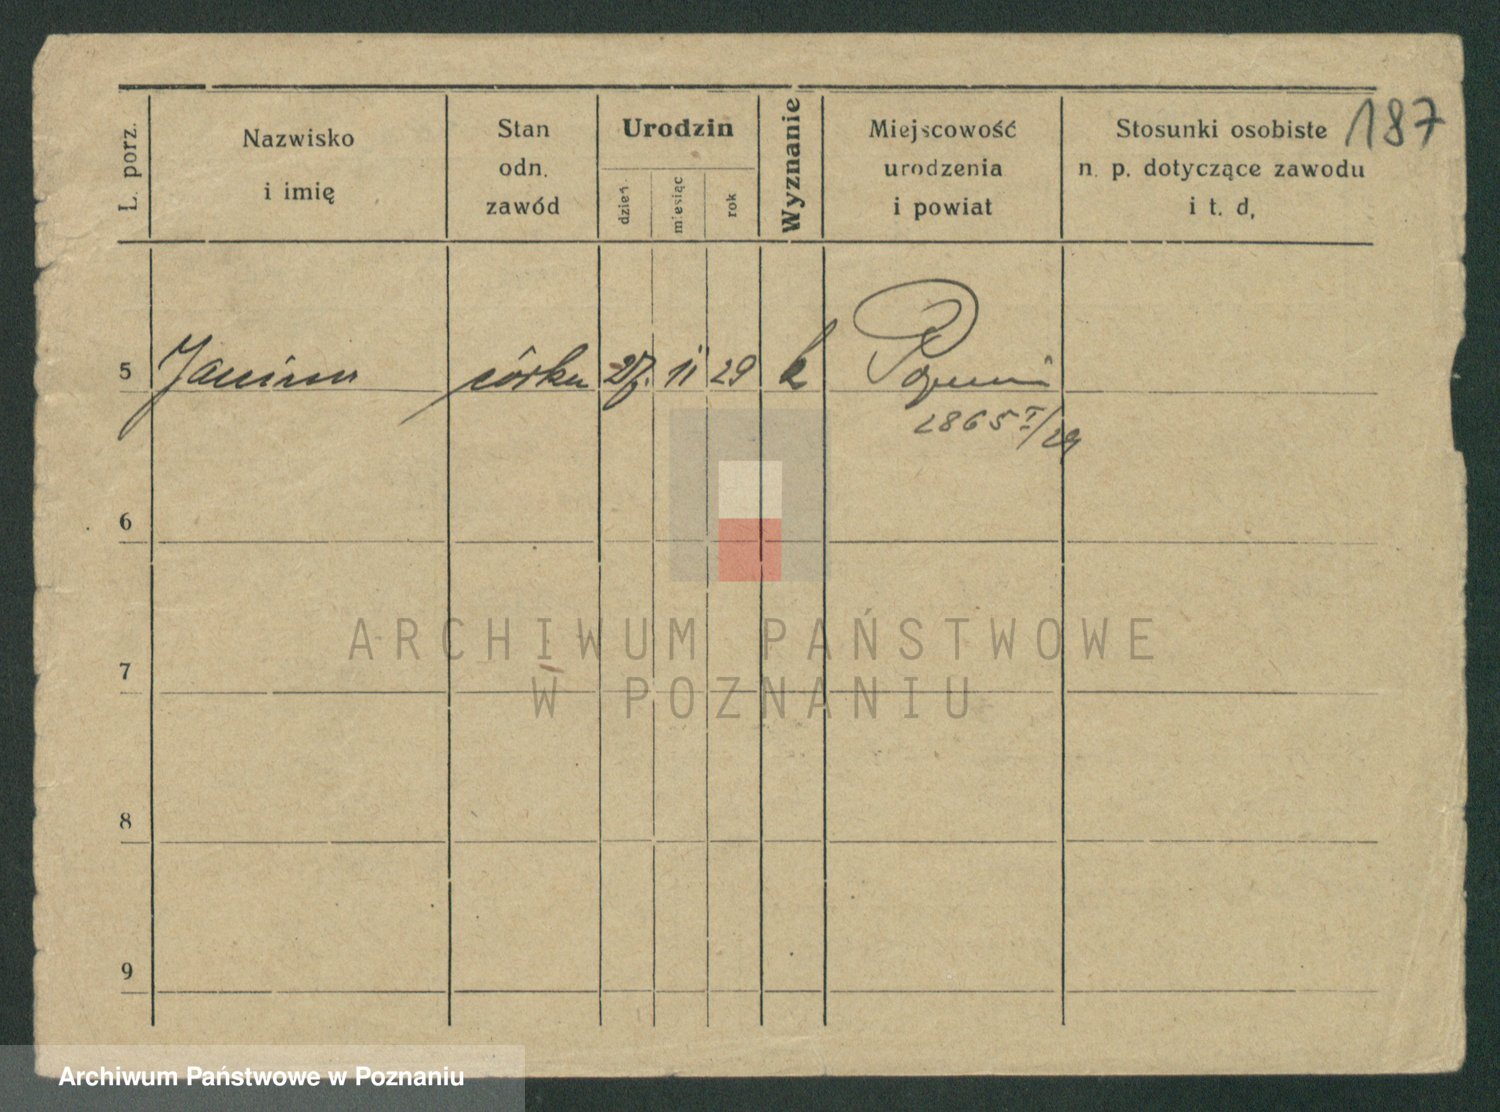 187
L. porz.
Nazwisko
i imię
Stan
odn.
zawód
Urodzin
dzień.
miesiąc
rok
Wyznanie
Miejscowość
urodzenia
i powiat
Stosunki osobiste
n. p. dotyczące zawodu
i t. d,
5 Janina córka 27. 11 29 k Poznań
2865 I/29
6
7
8
9
ARCHIWUM PAŃSTWOWE
W POZNANIU
Archiwum Państwowe w Poznaniu